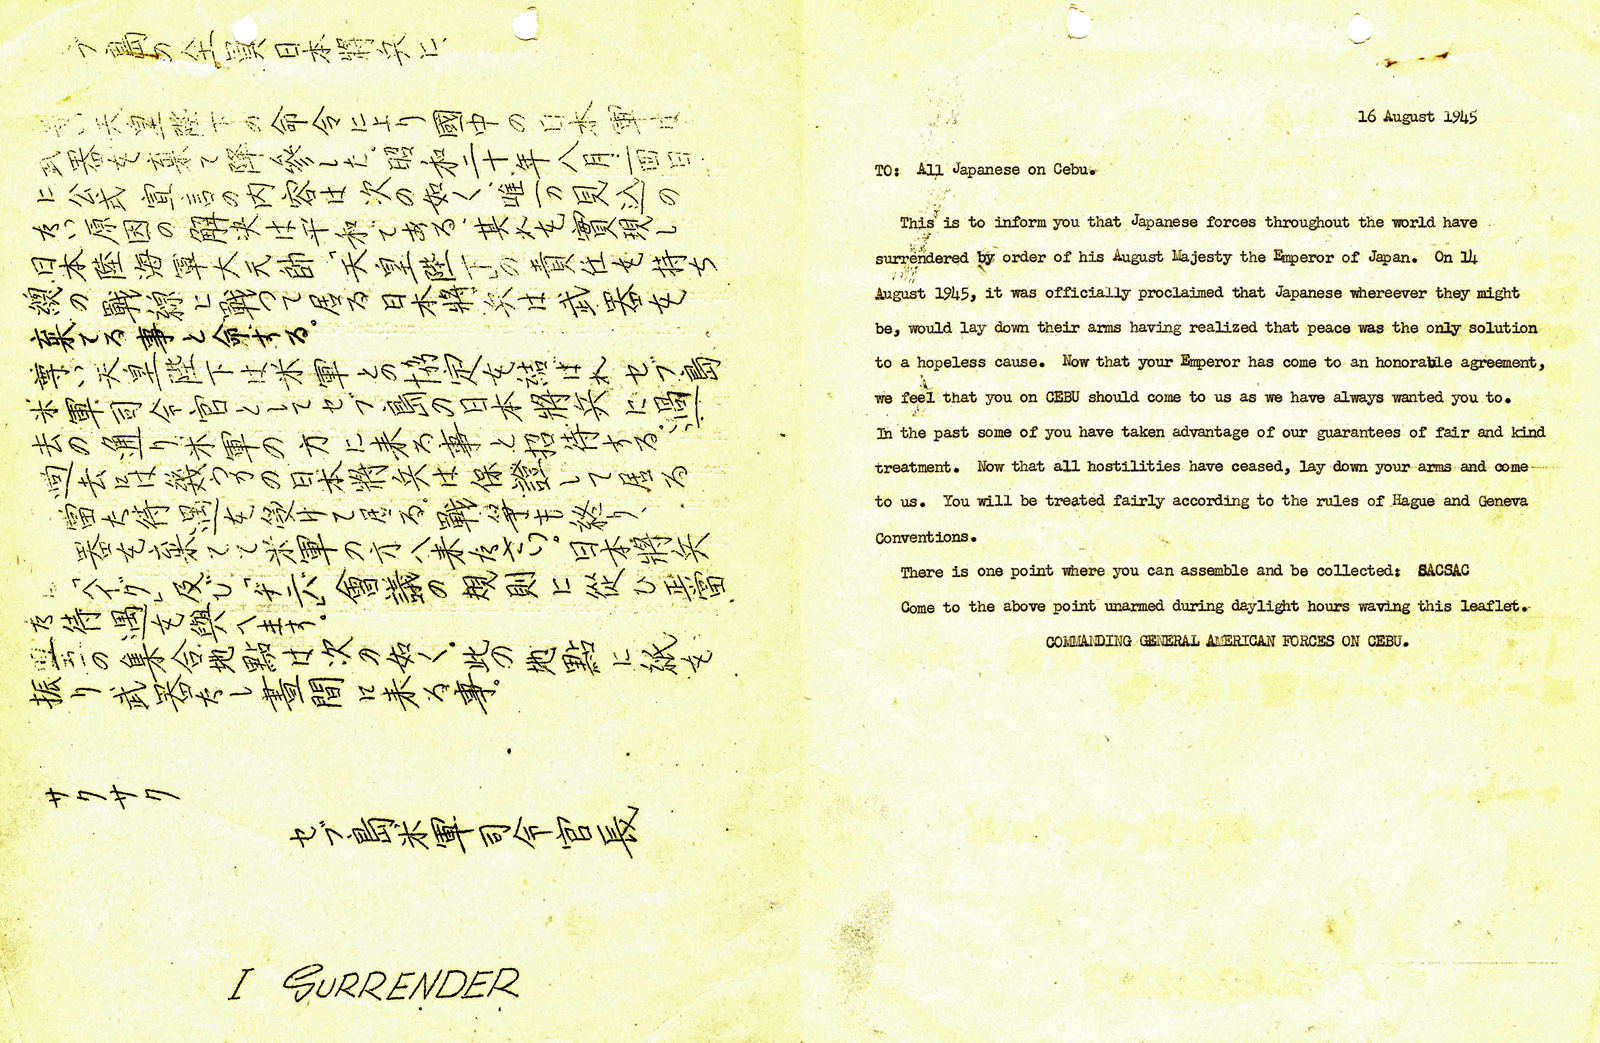 ブ島の全員日本將兵に
天皇陛下の命令により國中の日本軍は
武器を棄て降參した。昭和二十年八月一四日
に公式宣言の内容は次の如く、唯一の見込の
ない原因の解決は平和である、其れを實現し
日本陸海軍大元帥「天皇陛下」の責任を持ち
總の戰線に戰つて居る日本將兵は武器を
棄てる事と命する。
尊い天皇陛下は米軍との協定を結ばれセブ島
米軍司令官としてセブ島の日本將兵に過
去の通り米軍の方に来る事と招待する。
過去には幾つかの日本將兵は保證して居る
當た待遇を受けて居る。戰爭も終り、
器を棄てて米軍の方へ来なさい。日本將兵
「ヘイグ」及び 會議の規則に從ひ正當
な待遇を與へます。
の集合地點は次の如く。此の地點に紙を
振り武器なし晝間に来る事。
サクサク
セブ島米軍司令官長
I SURRENDER
16 August 1945
TO: All Japanese on Cebu.
This is to inform you that Japanese forces throughout the world have
surrendered by order of his August Majesty the Emperor of Japan. On 14
August 1945, it was officially proclaimed that Japanese whereever they might
be, would lay down their arms having realized that peace was the only solution
to a hopeless cause. Now that your Emperor has come to an honorable agreement,
we feel that you on CEBU should come to us as we have always wanted you to.
In the past some of you have taken advantage of our guarantees of fair and kind
treatment. Now that all hostilities have ceased, lay down your arms and come
to us. You will be treated fairly according to the rules of Hague and Geneva
Conventions.
There is one point where you can assemble and be collected: SACSAC
Come to the above point unarmed during daylight hours waving this leaflet.
COMMANDING GENERAL AMERICAN FORCES ON CEBU.